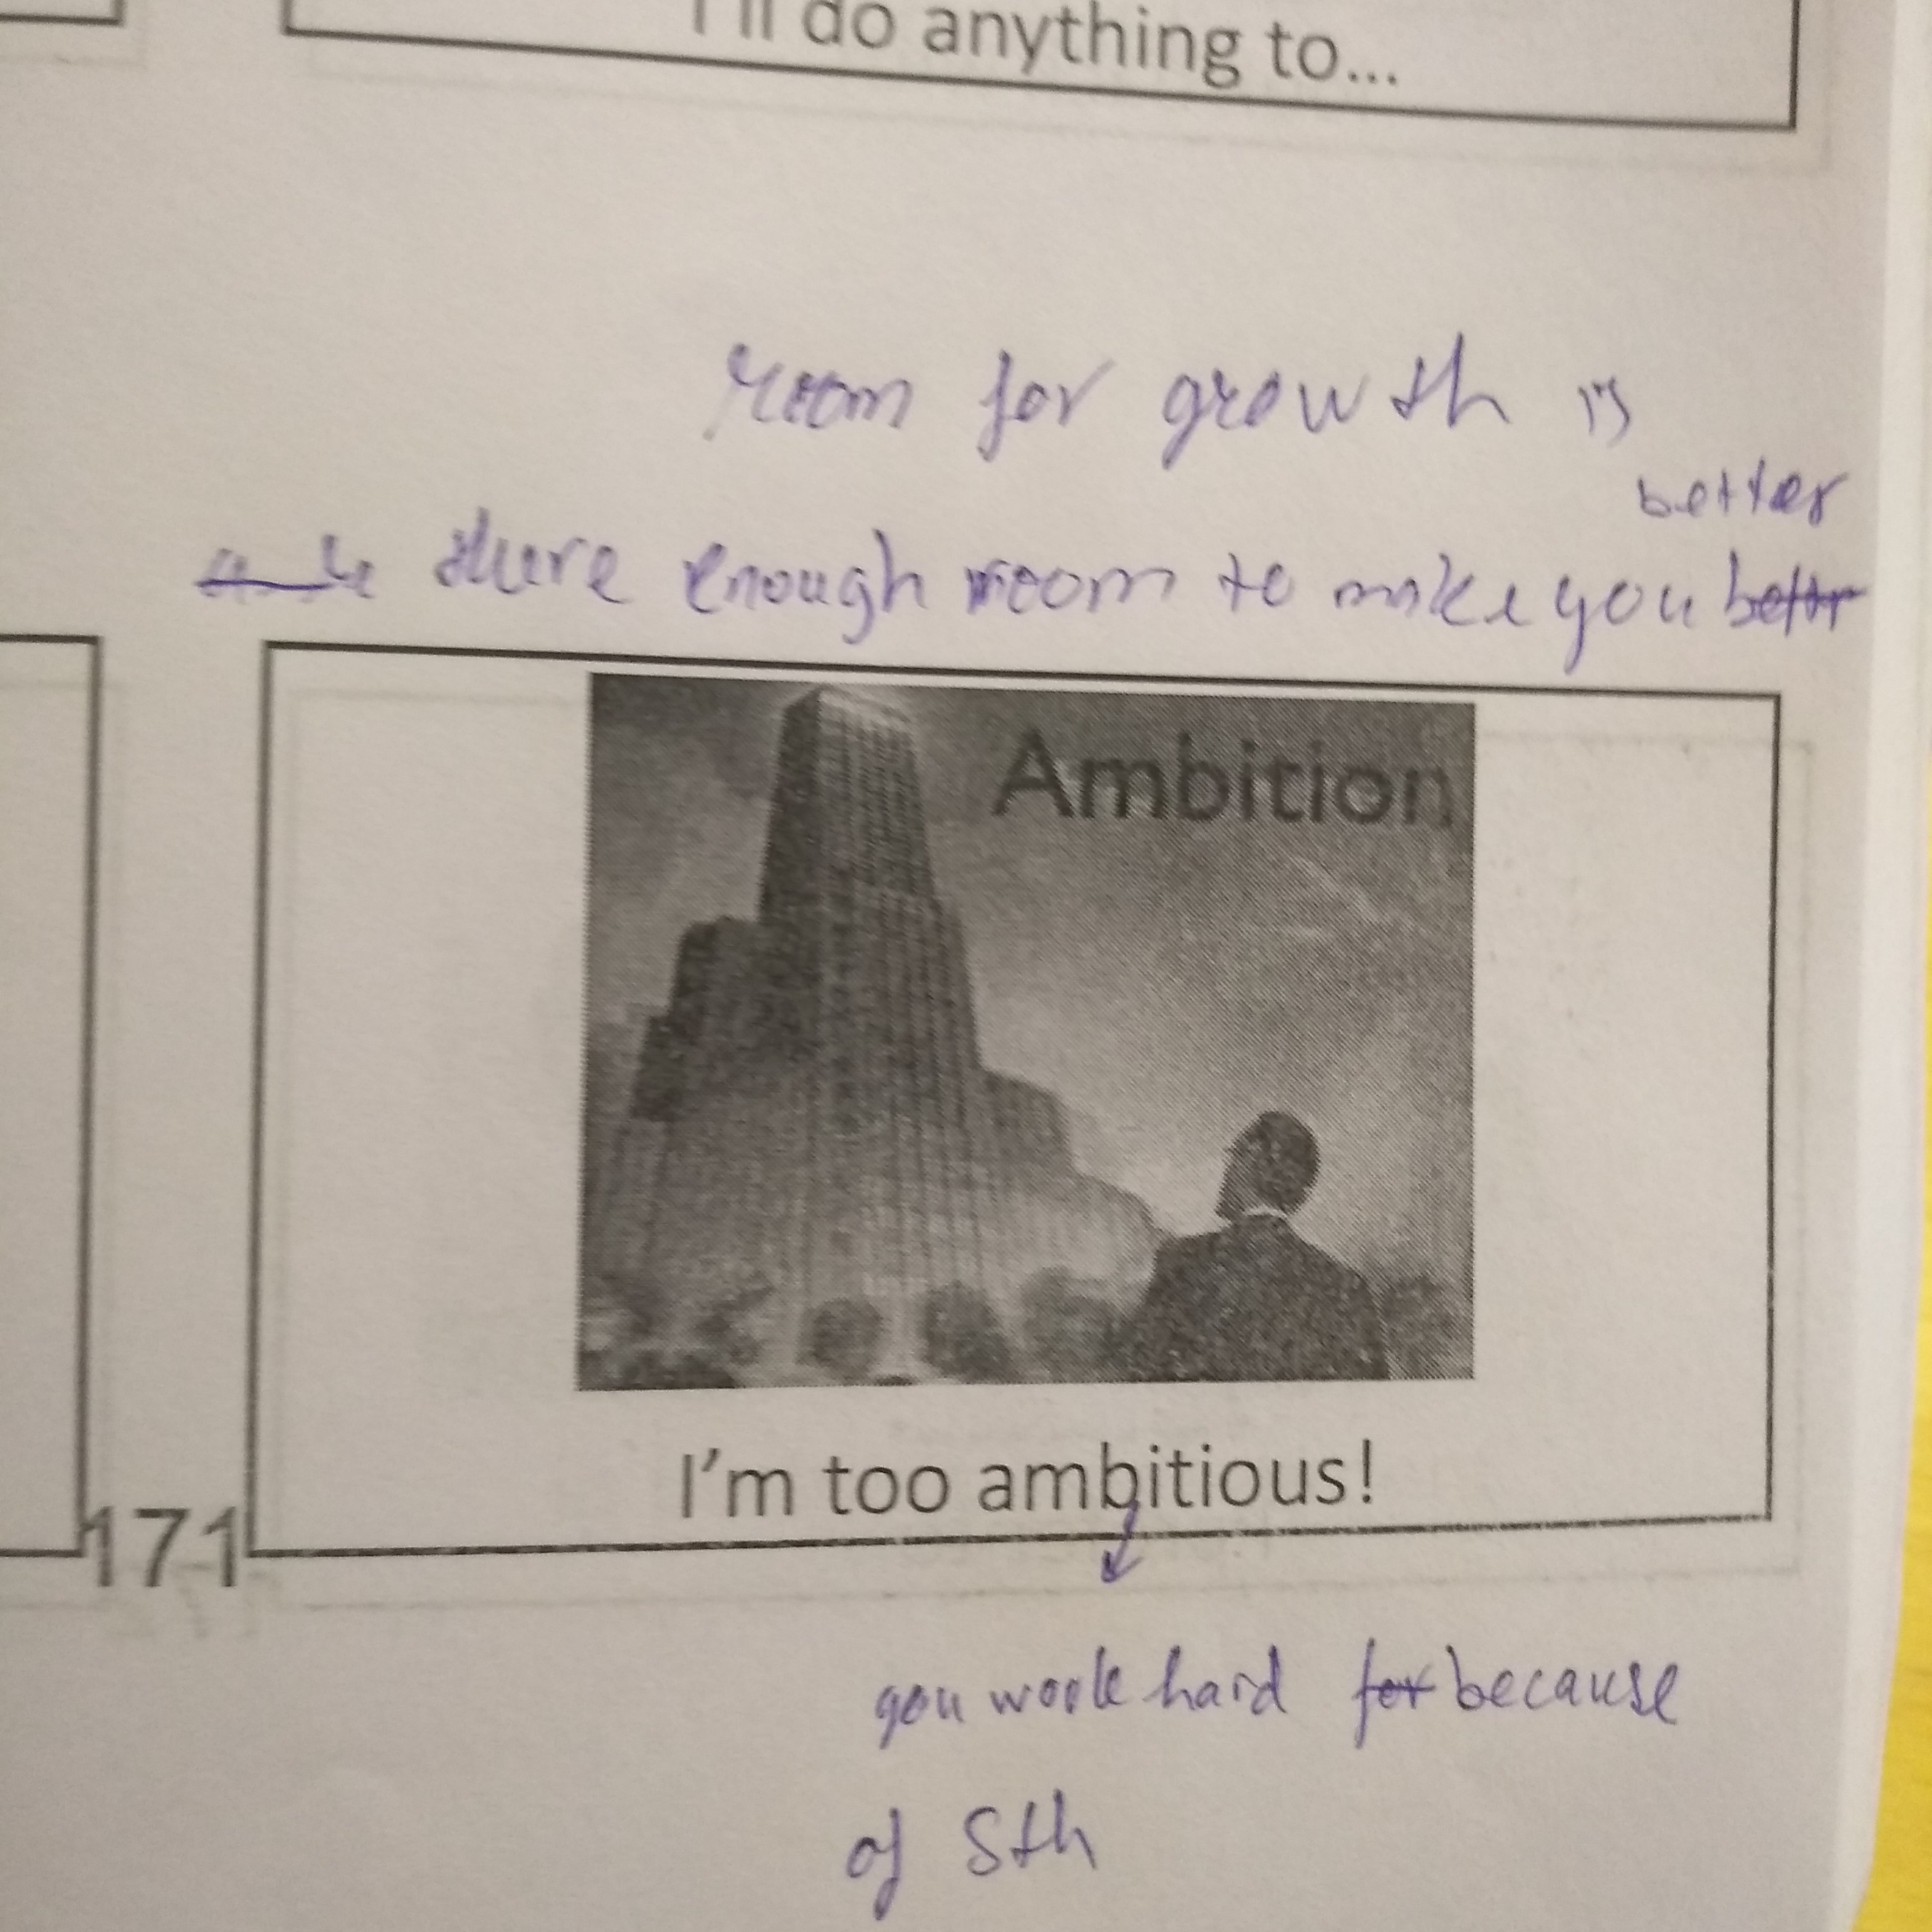 I'll do anything to...
room for growth is
better
there enough room to make you better
Ambition
I'm too ambitious!
171
you work hard for because
of Sth